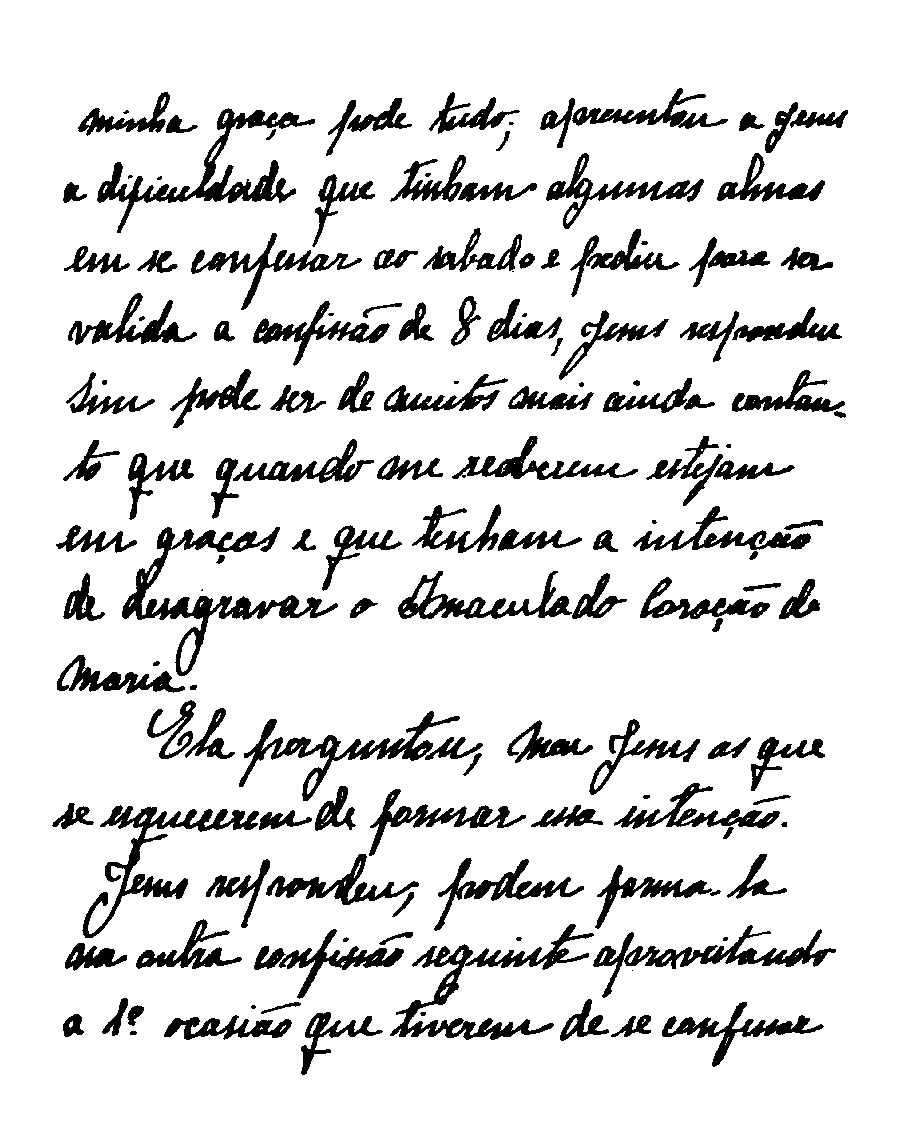 minha graça pode tudo; apresentou a Jesus
a dificuldade que tinham algumas almas
em se confessar ao sabado e pediu para ser
valida a confissão de 8 dias, Jesus respondeu
Sim pode ser de muitos mais ainda contan-
to que quando me receberem estejam
em graças e que tenham a intenção
de desagravar o Imaculado Coração de
Maria.
Ela perguntou, Meu Jesus as que
se esquecerem de formar essa intenção.
Jesus respondeu; podem forma-la
na outra confissão seguinte aproveitando
a 1º ocasião que tiverem de se confessar